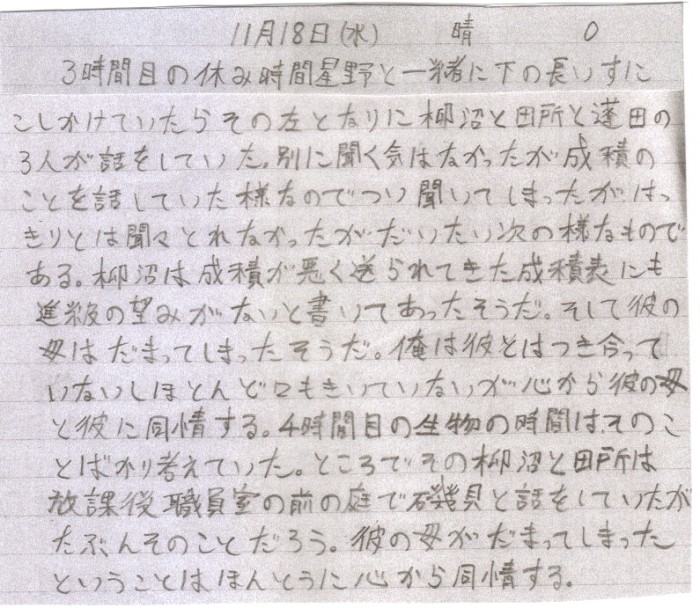 11月18日(水)　晴　0
3時間目の休み時間星野と一緒に下の長いすに
こしかけていたらその左となりに柳沼と田所と蓬田の
3人が話をしていた。別に聞く気はなかったが成積の
ことを話していた様なのでつい聞いてしまったがはっ
きりとは聞々とれなかったがだいたい次の様なもので
ある。柳沼は成積が悪く送られてきた成積表にも
進級の望みがないと書いてあったそうだ。そして彼の
母はだまってしまったそうだ。俺は彼とはつき合って
いないしほとんど口もきいていないが心から彼の母
と彼に同情する。4時間目の生物の時間はそのこ
とばかり考えていた。ところでその柳沼と田所は
放課後職員室の前の庭で磯貝と話をしていたが
たぶんそのことだろう。彼の母がだまってしまった
ということはほんとうに心から同情する。